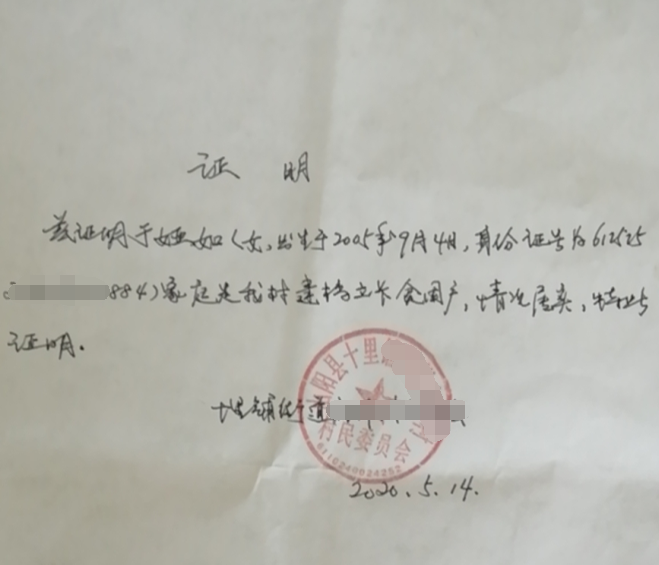 证 明
兹证明于娅如（女，出生于2005年9月4日，身份证号为612525
884）家庭是我村建档立卡贫困户，情况属实，特此
证明。
十里铺街道
阳县十里
村民委员会
6110240024252
2020.5.14.